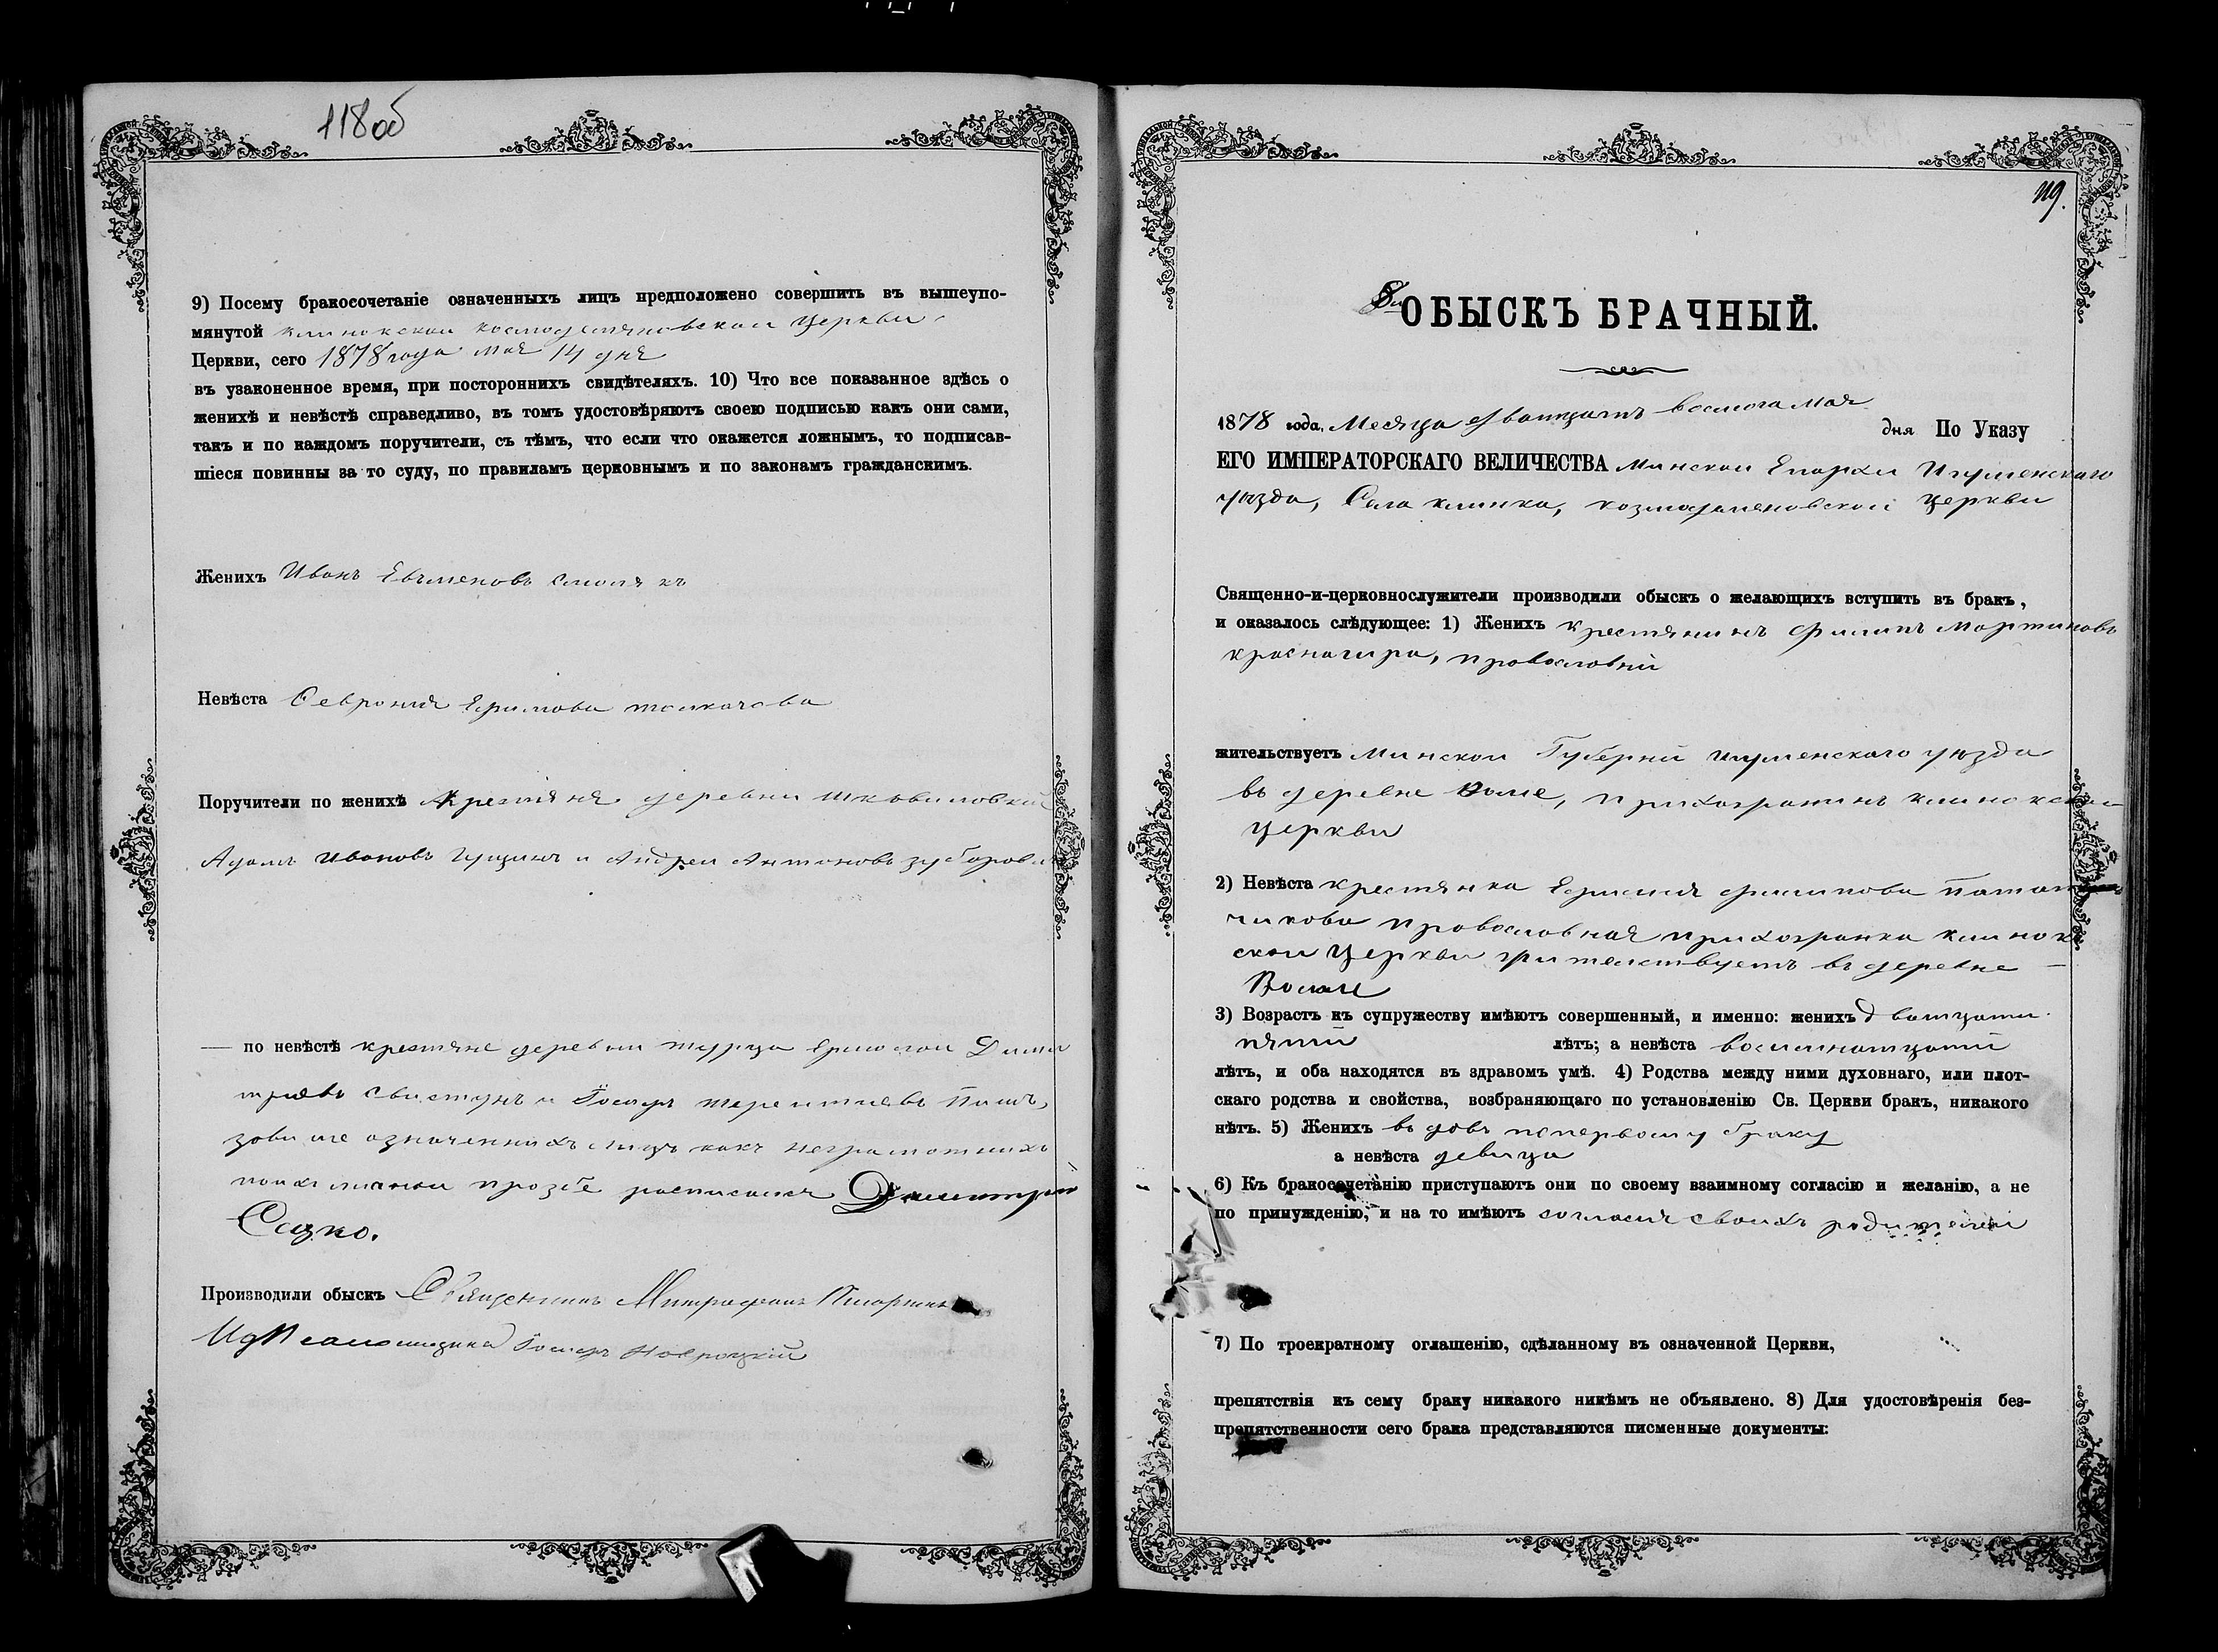 118об
9) Посему бракосочетаніе означенныхъ лицъ предположено совершить въ вышеупо-
мянутой клинокской космодемяновской церкви
Церкви, сего 1878 года мая 14 дня
въ узаконенное время, при постороннихъ свидѣтеляхъ. 10) Что все показанное здѣсь о
женихѣ и невѣстѣ справедливо, въ томъ удостовѣряютъ своею подписью какъ они сами,
такъ и по каждомъ поручители, съ тѣмъ, что если что окажется ложнымъ, то подписав-
шіеся повинны за то суду, по правиламъ церковнымъ и по законамъ гражданскимъ.
Женихъ Иванъ Евменовъ смолякъ
Невѣста Феврония Ефимова толкачова
Поручители по женихѣ крестяня деревни
Адамъ Ивановъ и Андрей Антоновъ
— по невѣстѣ крестяне деревни
свистунъ и Іосифъ терентиевъ
означенихъ лицъ какъ неграмотнихъ
прозбе росписался Димитрий
Сацко.
Производили обыскъ Священникъ Митрофанъ
Іосифъ Новроцкий
119.
ОБЫСКЪ БРАЧНЫЙ.
1878 года, Месяца двацать восмога мая дня По Указу
ЕГО ИМПЕРАТОРСКАГО ВЕЛИЧЕСТВА Минской Епархи Игуменскаго
уезда, Села клинка, козмодемяновской церкви
Священно-и-церковнослужители производили обыскъ о желающихъ вступить въ бракъ,
и оказалось слѣдующее: 1) Женихъ крестянинъ филипъ Мартиновъ
краснагира, провословни
жительствуетъ Минской Губерни игуменскаго уезда
въ деревне Воле, прихожанинъ клинокской
церкви
2) Невѣста крестянка филипова
чикова провословная прихожанка клинок
ской церкви жителствуетъ въ деревне —
Воле
3) Возрастъ къ супружеству имѣютъ совершенный, и именно: женихъ двацати
пяти лѣтъ; а невѣста восемнатцати
лѣтъ, и оба находятся въ здравомъ умѣ. 4) Родства между ними духовнаго, или плот-
скаго родства и свойства, возбраняющаго по установленію Св. Церкви бракъ, никакого
нѣтъ. 5) Женихъ вдовъ попервому браку
а невѣста девица
6) Къ бракосочетанію приступаютъ они по своему взаимному согласію и желанію, а не
по принужденію, и на то имѣютъ согласия своихъ родителей
7) По троекратному оглашенію, сдѣланному въ означенной Церкви,
препятствія къ сему браку никакого никѣмъ не объявлено. 8) Для удостовѣренія без-
препятственности сего брака представляются писменные документы: